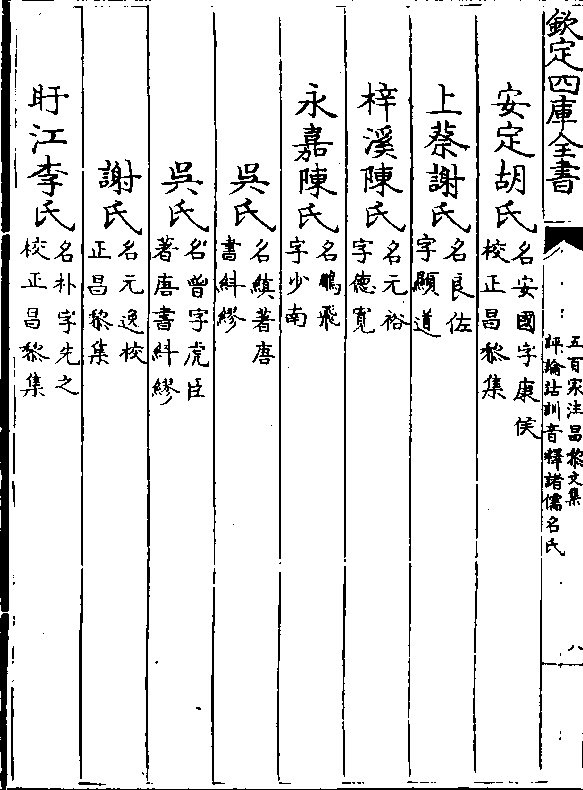 欽定四庫全書
五百家注昌黎文集
評論詁訓音釋諸儒名氏
八
安定胡氏
名安國字康侯
校正昌黎集
上蔡謝氏
名良佐
字顯道
梓溪陳氏
名元裕
字德寬
永嘉陳氏
名鵬飛
字少南
吳氏
名縝著唐
書紏繆
吳氏
名曾字虎臣
著唐書紏繆
謝氏
名元逸校
正昌黎集
盱江李氏
名朴字先之
校正昌黎集